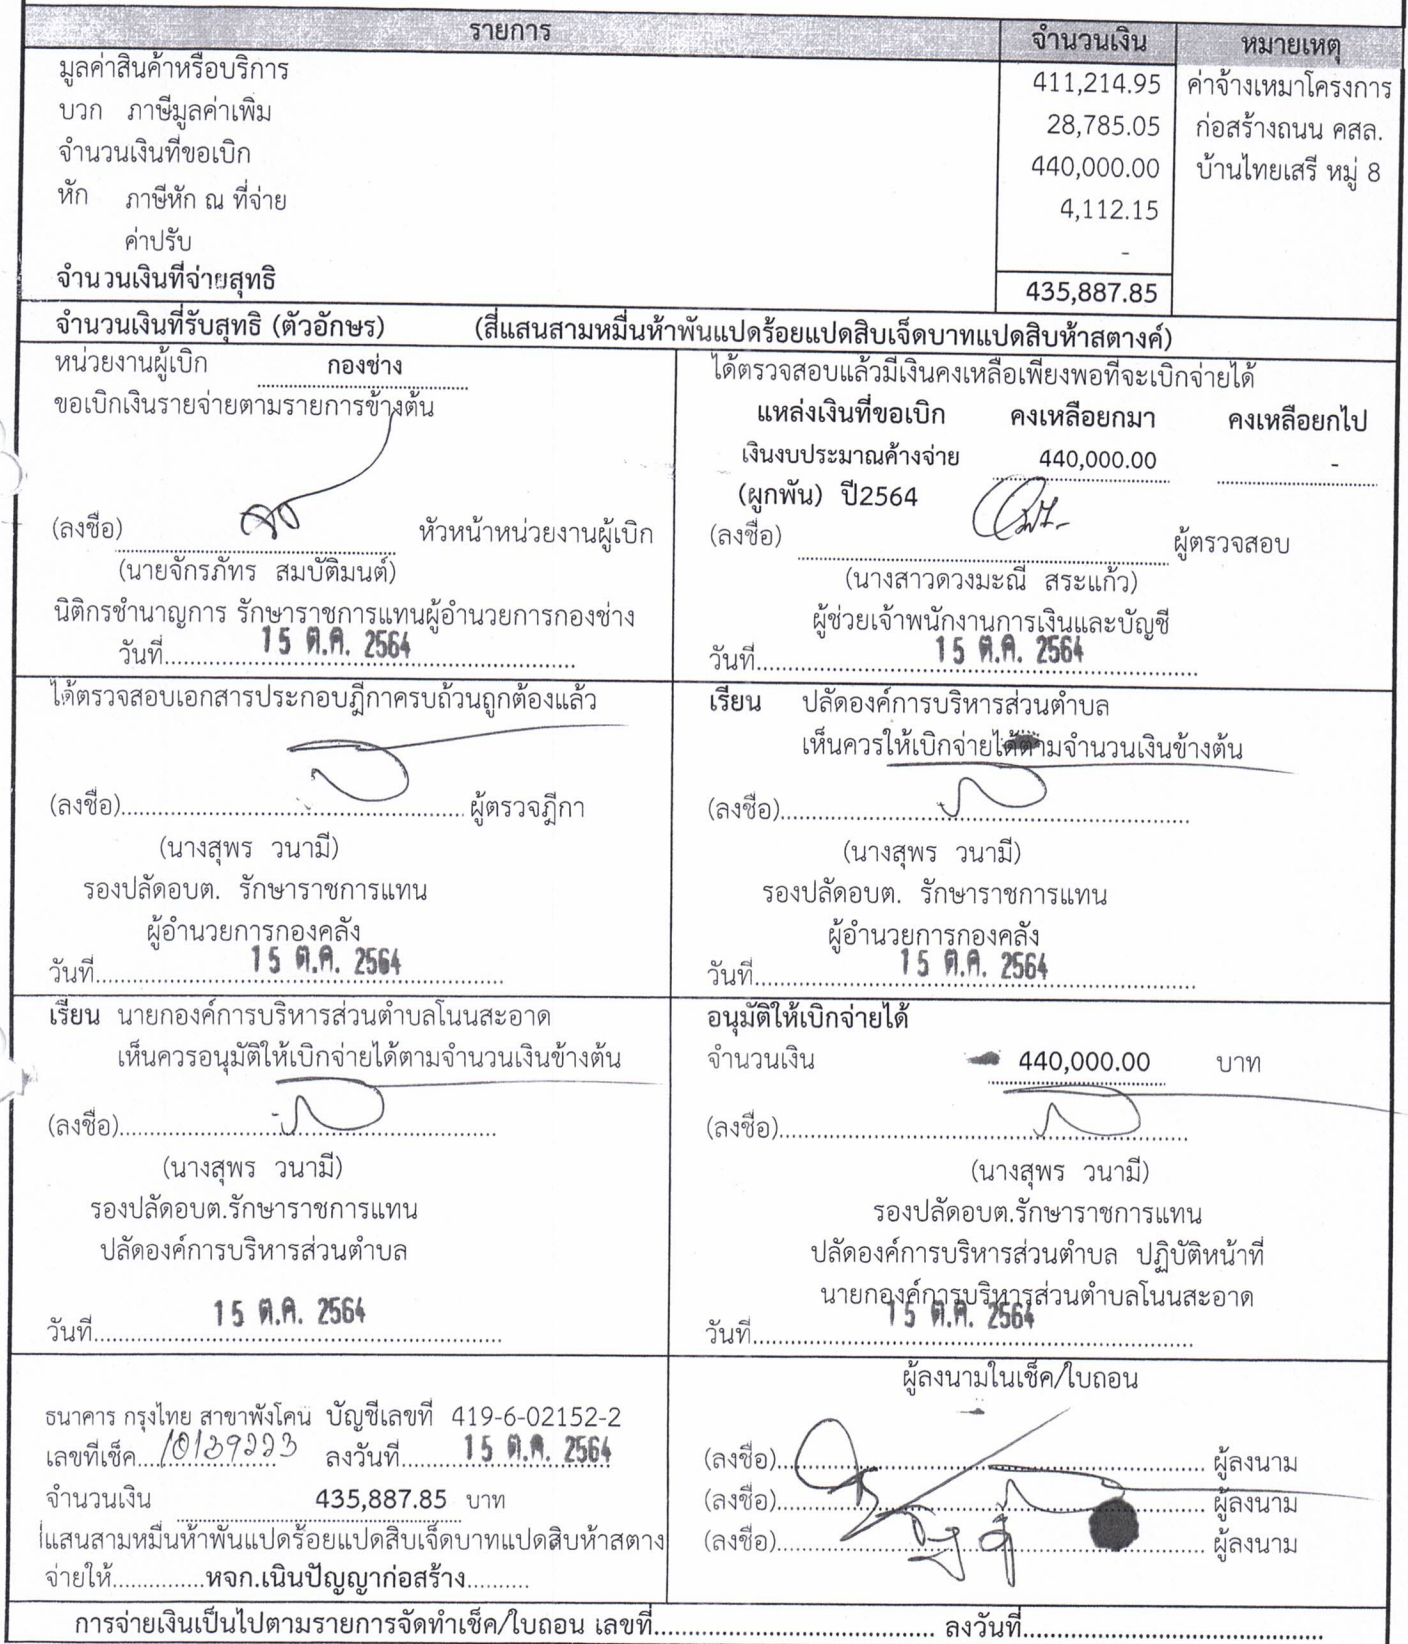 รายการ จำนวนเงิน หมายเหตุ
มูลค่าสินค้าหรือบริการ 411,214.95 ค่าจ้างเหมาโครงการ
บวก ภาษีมูลค่าเพิ่ม 28,785.05 ก่อสร้างถนน คสล.
จำนวนเงินที่ขอเบิก 440,000.00 บ้านไทยเสรี หมู่ 8
หัก ภาษีหัก ณ ที่จ่าย 4,112.15
ค่าปรับ -
จำนวนเงินที่จ่ายสุทธิ 435,887.85
จำนวนเงินที่รับสุทธิ (ตัวอักษร) (สี่แสนสามหมื่นห้าพันแปดร้อยแปดสิบเจ็ดบาทแปดสิบห้าสตางค์)
หน่วยงานผู้เบิก กองช่าง
ขอเบิกเงินรายจ่ายตามรายการข้างต้น
(ลงชื่อ) หัวหน้าหน่วยงานผู้เบิก
(นายจักรภัทร สมบัติมนต์)
นิติกรชำนาญการ รักษาราชการแทนผู้อำนวยการกองช่าง
วันที่ 15 ต.ค. 2564
ได้ตรวจสอบแล้วมีเงินคงเหลือเพียงพอที่จะเบิกจ่ายได้
แหล่งเงินที่ขอเบิก คงเหลือยกมา คงเหลือยกไป
เงินงบประมาณค้างจ่าย 440,000.00 -
(ผูกพัน) ปี2564
(ลงชื่อ) ผู้ตรวจสอบ
(นางสาวดวงมะณี สระแก้ว)
ผู้ช่วยเจ้าพนักงานการเงินและบัญชี
วันที่ 15 ต.ค. 2564
ได้ตรวจสอบเอกสารประกอบฎีกาครบถ้วนถูกต้องแล้ว
(ลงชื่อ) ผู้ตรวจฎีกา
(นางสุพร วนามี)
รองปลัดอบต. รักษาราชการแทน
ผู้อำนวยการกองคลัง
วันที่ 15 ต.ค. 2564
เรียน ปลัดองค์การบริหารส่วนตำบล
เห็นควรให้เบิกจ่ายได้ตามจำนวนเงินข้างต้น
(ลงชื่อ)
(นางสุพร วนามี)
รองปลัดอบต. รักษาราชการแทน
ผู้อำนวยการกองคลัง
วันที่ 15 ต.ค. 2564
เรียน นายกองค์การบริหารส่วนตำบลโนนสะอาด
เห็นควรอนุมัติให้เบิกจ่ายได้ตามจำนวนเงินข้างต้น
(ลงชื่อ)
(นางสุพร วนามี)
รองปลัดอบต.รักษาราชการแทน
ปลัดองค์การบริหารส่วนตำบล
วันที่ 15 ต.ค. 2564
อนุมัติให้เบิกจ่ายได้
จำนวนเงิน 440,000.00 บาท
(ลงชื่อ)
(นางสุพร วนามี)
รองปลัดอบต.รักษาราชการแทน
ปลัดองค์การบริหารส่วนตำบล ปฏิบัติหน้าที่
นายกองค์การบริหารส่วนตำบลโนนสะอาด
วันที่ 15 ต.ค. 2564
ธนาคาร กรุงไทย สาขาพังโคน บัญชีเลขที่ 419-6-02152-2
เลขที่เช็ค 10139223 ลงวันที่ 15 ต.ค. 2564
จำนวนเงิน 435,887.85 บาท
แสนสามหมื่นห้าพันแปดร้อยแปดสิบเจ็ดบาทแปดสิบห้าสตาง
จ่ายให้ หจก.เนินปัญญาก่อสร้าง
ผู้ลงนามในเช็ค/ใบถอน
(ลงชื่อ) ผู้ลงนาม
(ลงชื่อ) ผู้ลงนาม
(ลงชื่อ) ผู้ลงนาม
การจ่ายเงินเป็นไปตามรายการจัดทำเช็ค/ใบถอน เลขที่ ลงวันที่